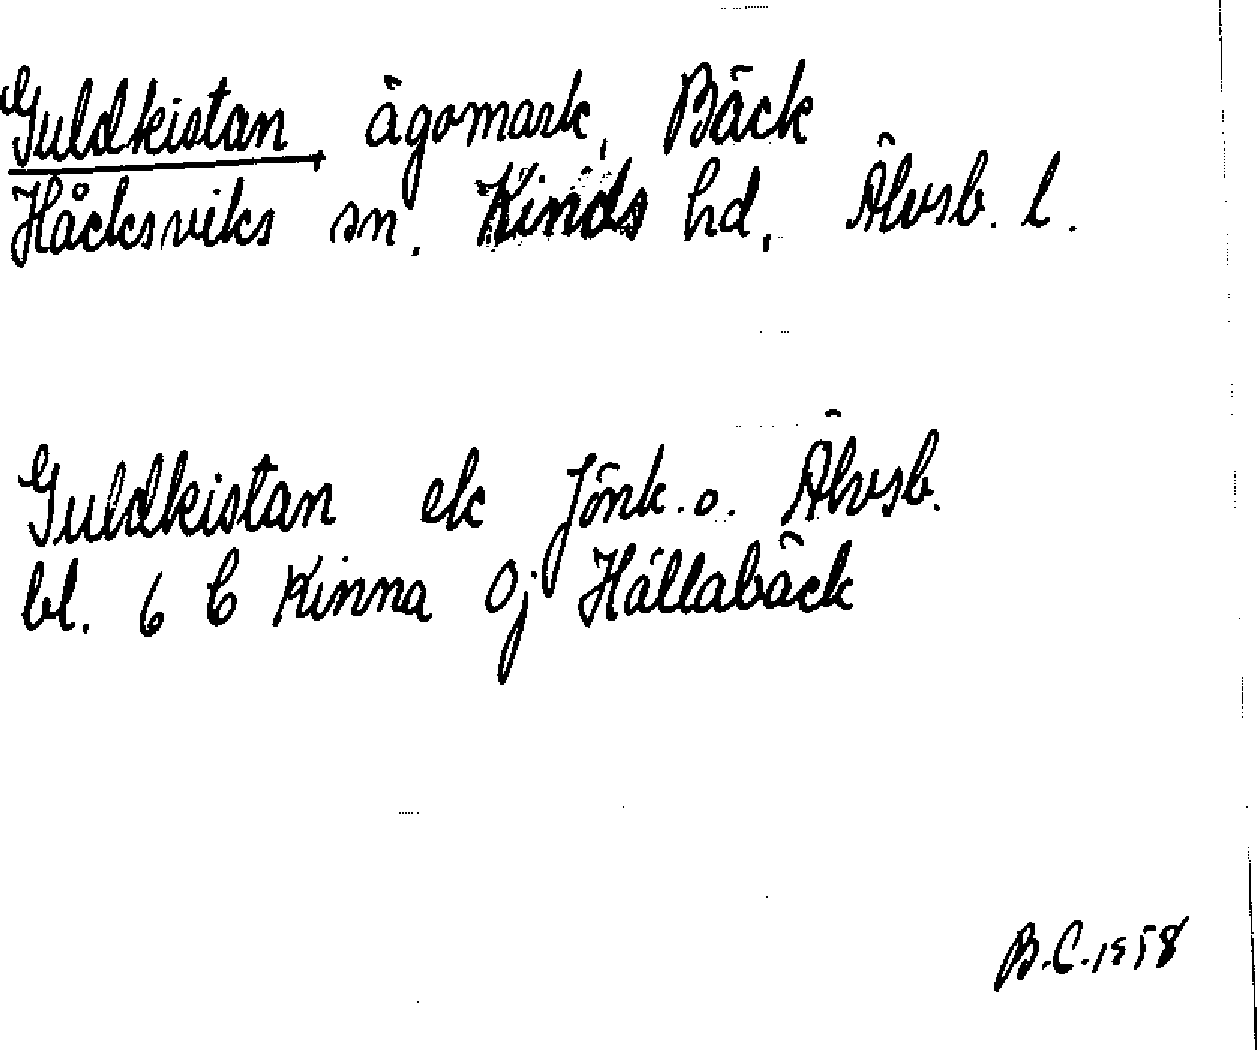 Guldkistan, ägomark, Bäck
Håcksviks sn. Kinds hd, Älvsb. l.
Guldkistan ek Jönk. o. Älvsb.
bl. 6 C Kinna Oj Hällabäck
B.C. 1958